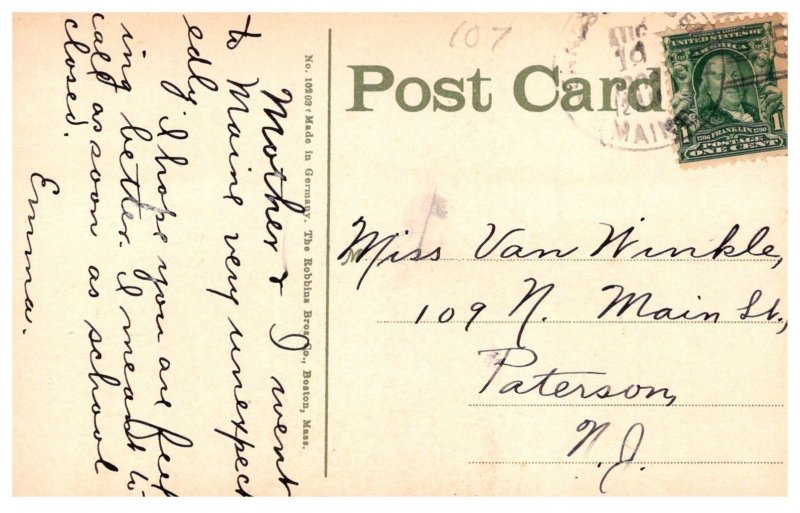 Mother & I went
to Maine very unexpect
edly. I hope you are feel
ing better. I meant to
call as soon as school
closed.
Emma.
No. 10203 Made in Germany. The Robbins Bros. Co., Boston, Mass.
107
Post Card
AUG
MAINE
SERIES 1902
UNITED STATES OF
AMERICA
1706 FRANKLIN 1790
1 POSTAGE 1
ONE CENT
Miss Van Winkle,
109 N. Main St.,
Paterson,
N.J.